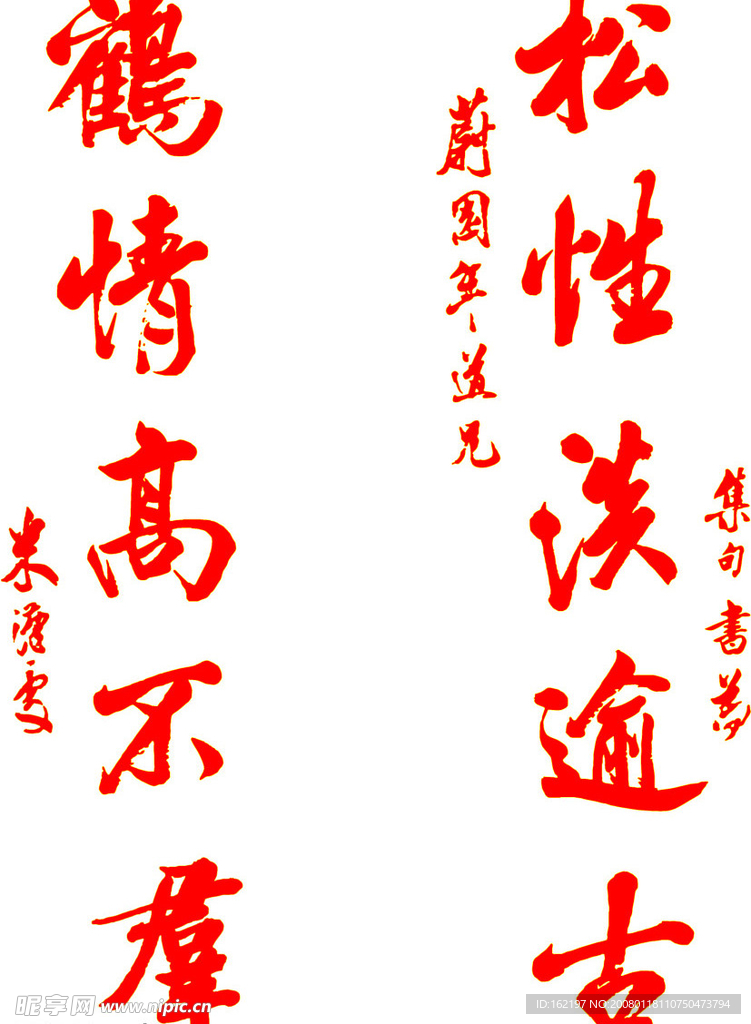 集句書為
松性淡逾古
蔚園年道兄
鶴情高不羣
昵享网 www.nipic.cn
ID:162197 NO:20080118110750473794